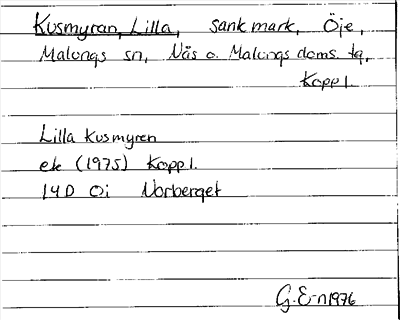 Kusmyran, Lilla, sank mark, Öje,
Malungs sn, Näs o. Malungs doms. tg,
Kopp l.
Lilla Kusmyren
ek (1975) Kopp l.
14D 0i Norberget
G. E-n 1976